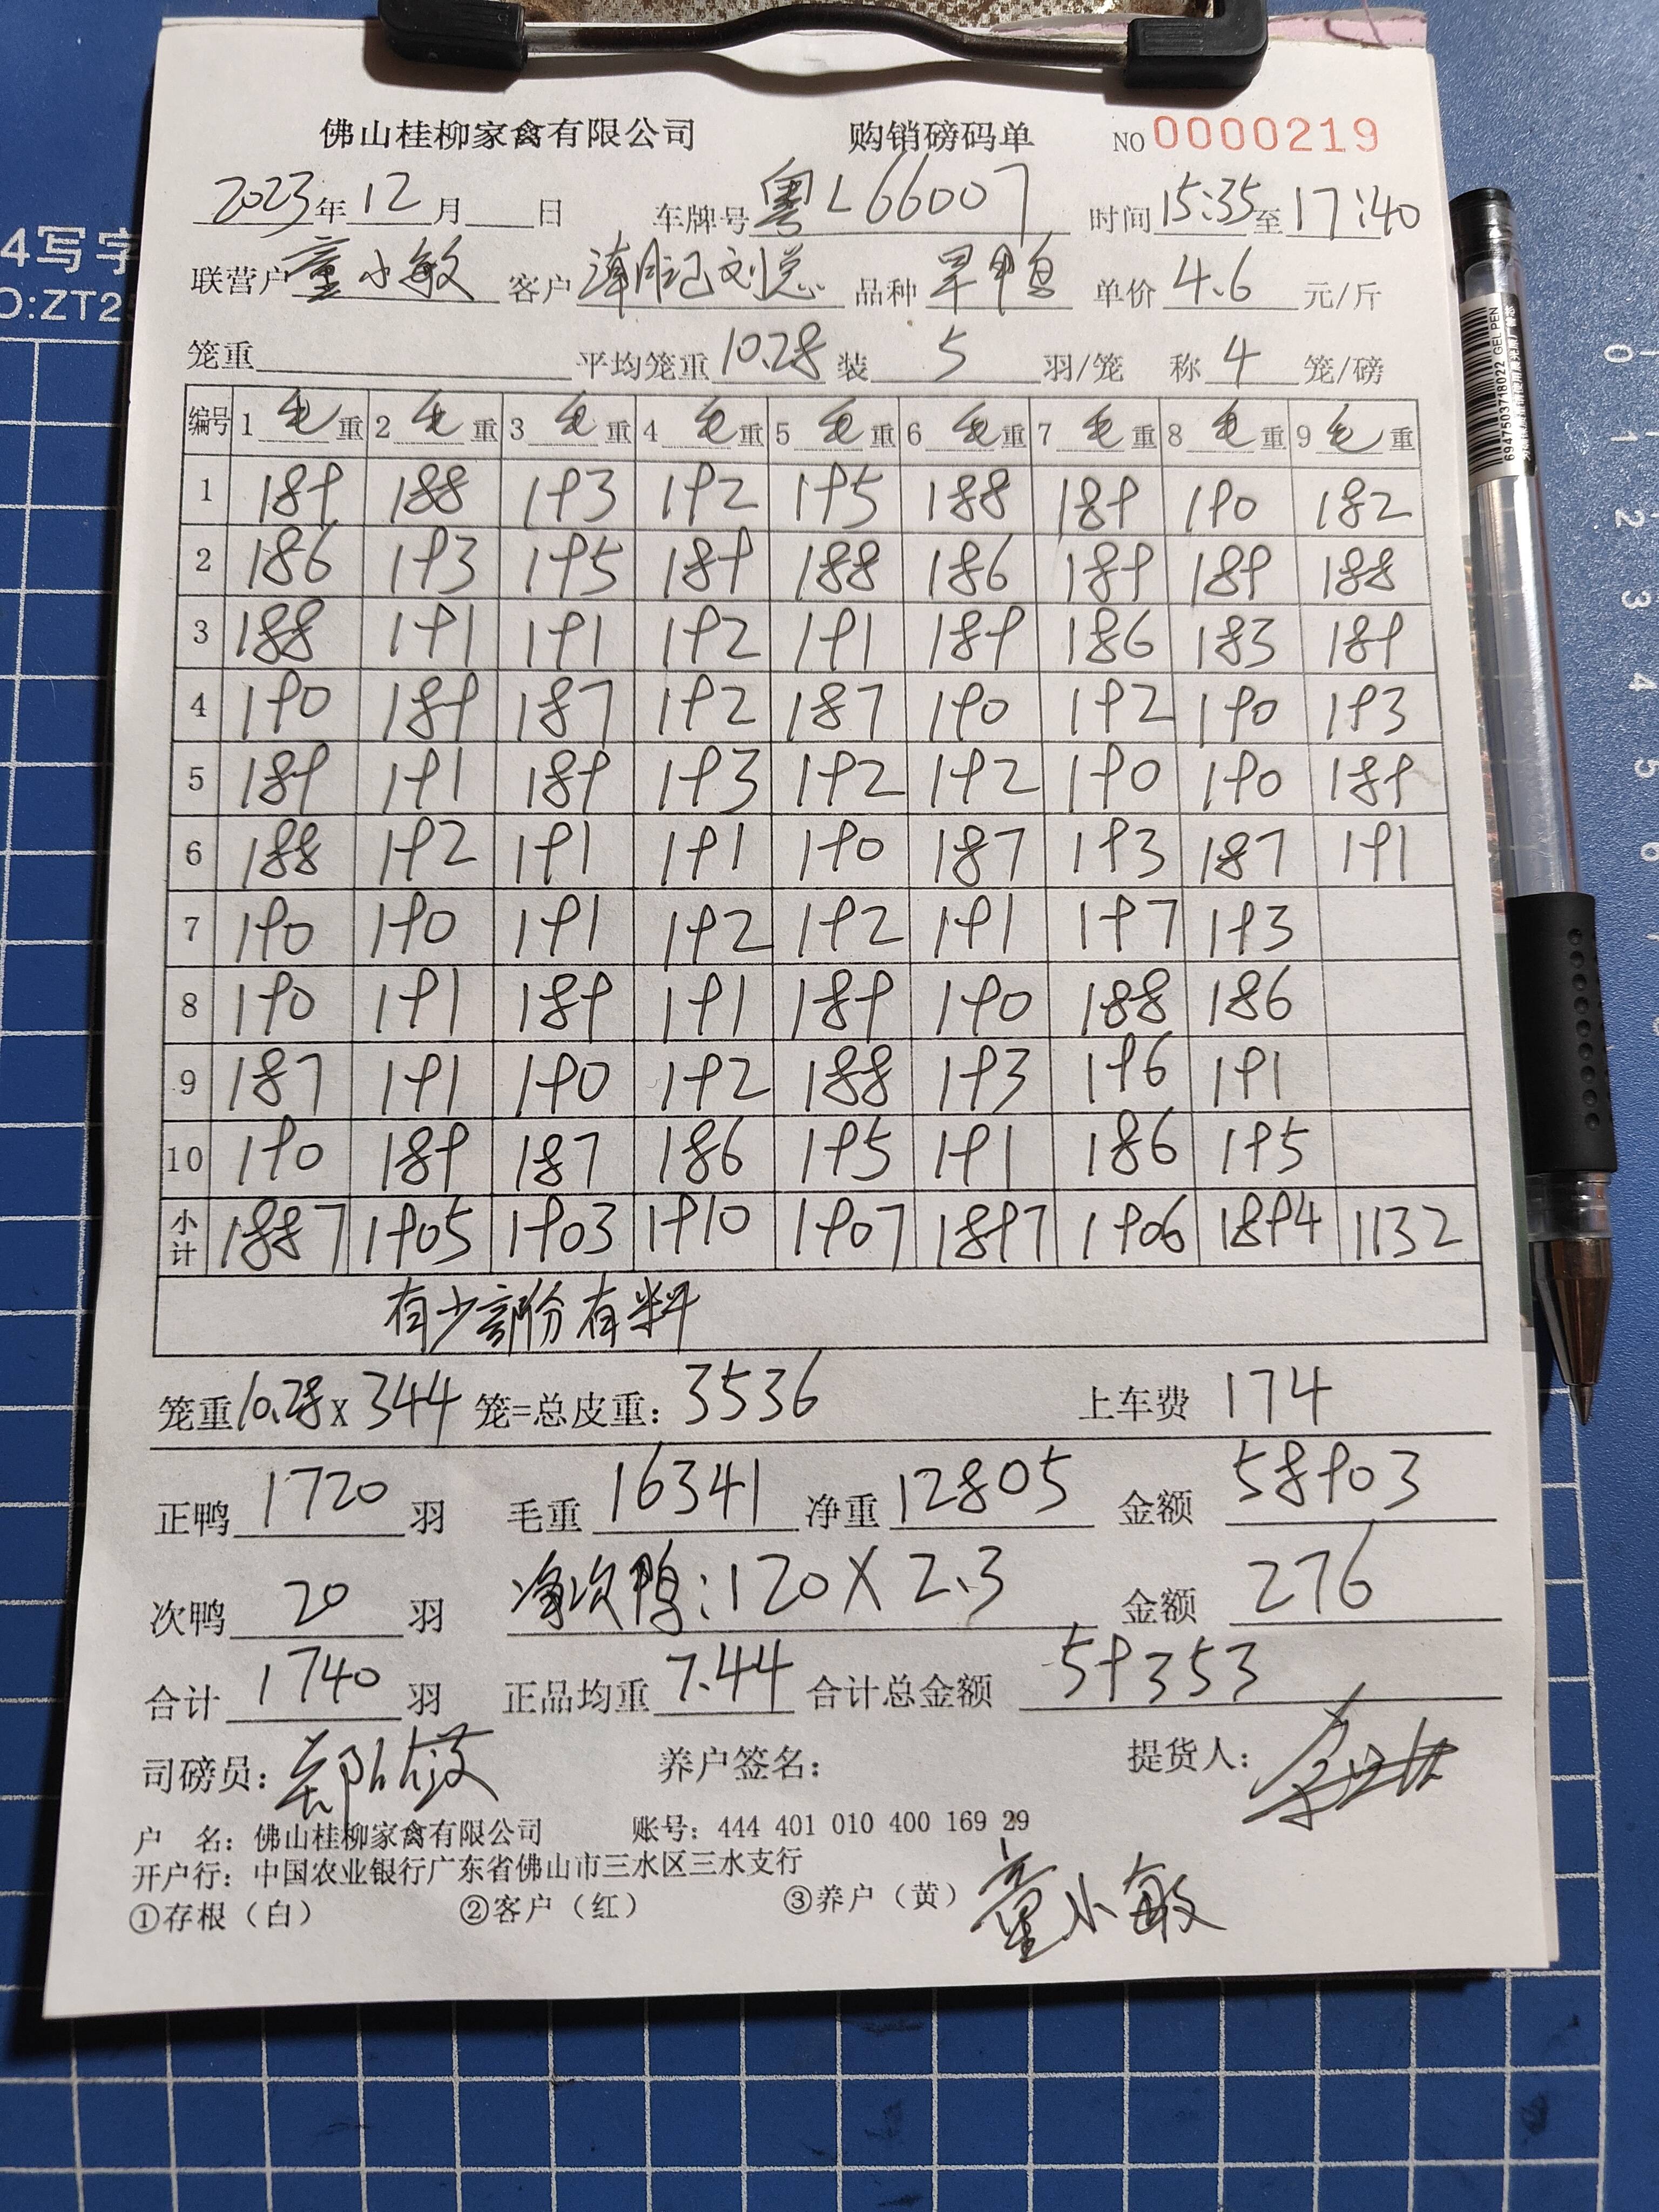 佛山桂柳家禽有限公司 购销磅码单 NO 0000219
2023年12月 日 车牌号粤L66007 时间15:35至17:40
联营户童小敏 客户 记刘总 品种旱鸭 单价4.6元/斤
笼重 平均笼重10.28装5羽/笼 称4笼/磅
编号 1毛重 2毛重 3毛重 4毛重 5毛重 6毛重 7毛重 8毛重 9毛重
1 189 188 193 192 195 188 189 190 182
2 186 193 195 189 188 186 189 189 188
3 188 191 191 192 191 189 186 183 189
4 190 189 187 192 187 190 192 190 193
5 189 191 189 193 192 192 190 190 189
6 188 192 191 191 190 187 193 187 191
7 190 190 191 192 192 191 197 193
8 190 191 189 191 189 190 188 186
9 187 191 190 192 188 193 196 191
10 190 189 187 186 195 191 186 195
小计 1887 1905 1903 1910 1907 1897 1906 1894 1132
有少部份有料
笼重10.28x344笼=总皮重：3536 上车费174
正鸭1720羽 毛重16341净重12805 金额58903
次鸭20羽 净次鸭：120X2.3 金额276
合计1740羽 正品均重7.44合计总金额59353
司磅员： 养户签名： 提货人：
户 名：佛山桂柳家禽有限公司 账号：444 401 010 400 169 29
开户行：中国农业银行广东省佛山市三水区三水支行
①存根（白） ②客户（红） ③养户（黄） 童小敏
4写字
O:ZT2
6947503718022 GEL PEN
0 1 2 3 4 5 6